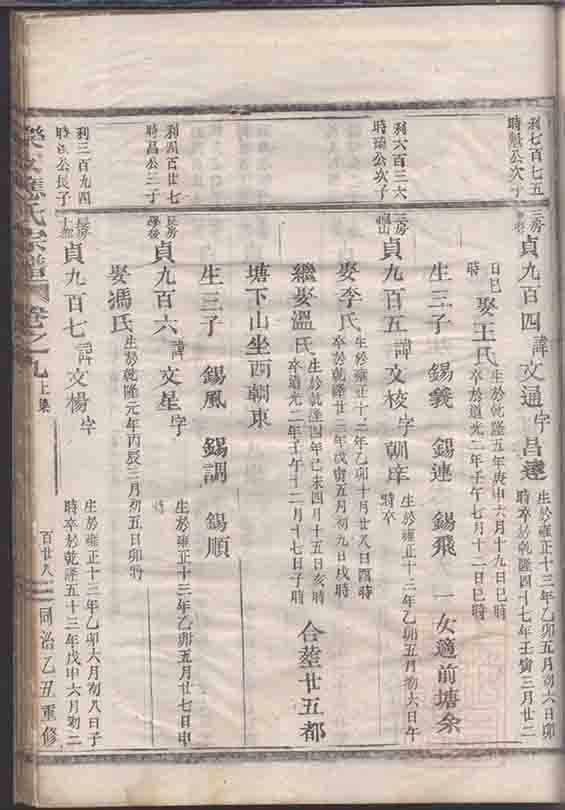 利七百七五
時魁公次子
三房
貞九百四
諱文通字昌達
生於雍正十三年乙卯五月初六日卯
時卒於乾隆四十七年壬寅三月廿二
日巳
時
娶王氏
生於乾隆五年庚申六月十九日巳時
卒於道光二年壬午七月十二日巳時
生三子 錫義 錫連 錫飛 一女適前塘余
利六百三六
時瑞公次子
三房
貞九百五
諱文棱字朝庠
生於雍正十三年乙卯五月初六日午
時卒
娶李氏
生於雍正十三年乙卯十月廿八日酉時
卒於乾隆廿三年戊寅五月初九日戌時
繼娶溫氏
生於乾隆四年己未四月十五日亥時
卒於道光二年壬午十二月十七日子時
合塟廿五都
塘下山坐西朝東
生三子 錫風 錫調 錫順
利四百廿七
時昌公三子
長房
學後
貞九百六
諱文星字
生於雍正十三年乙卯五月廿七日申
時
娶馮氏
生於乾隆元年丙辰三月初五日卯時
利三百九四
公長子
長房
貞九百七
諱文楊字
生於雍正十三年乙卯六月初八日子
時卒於乾隆五十三年戊申六月初二
應氏宗譜 卷之九 上集 百廿八 同治乙丑重修